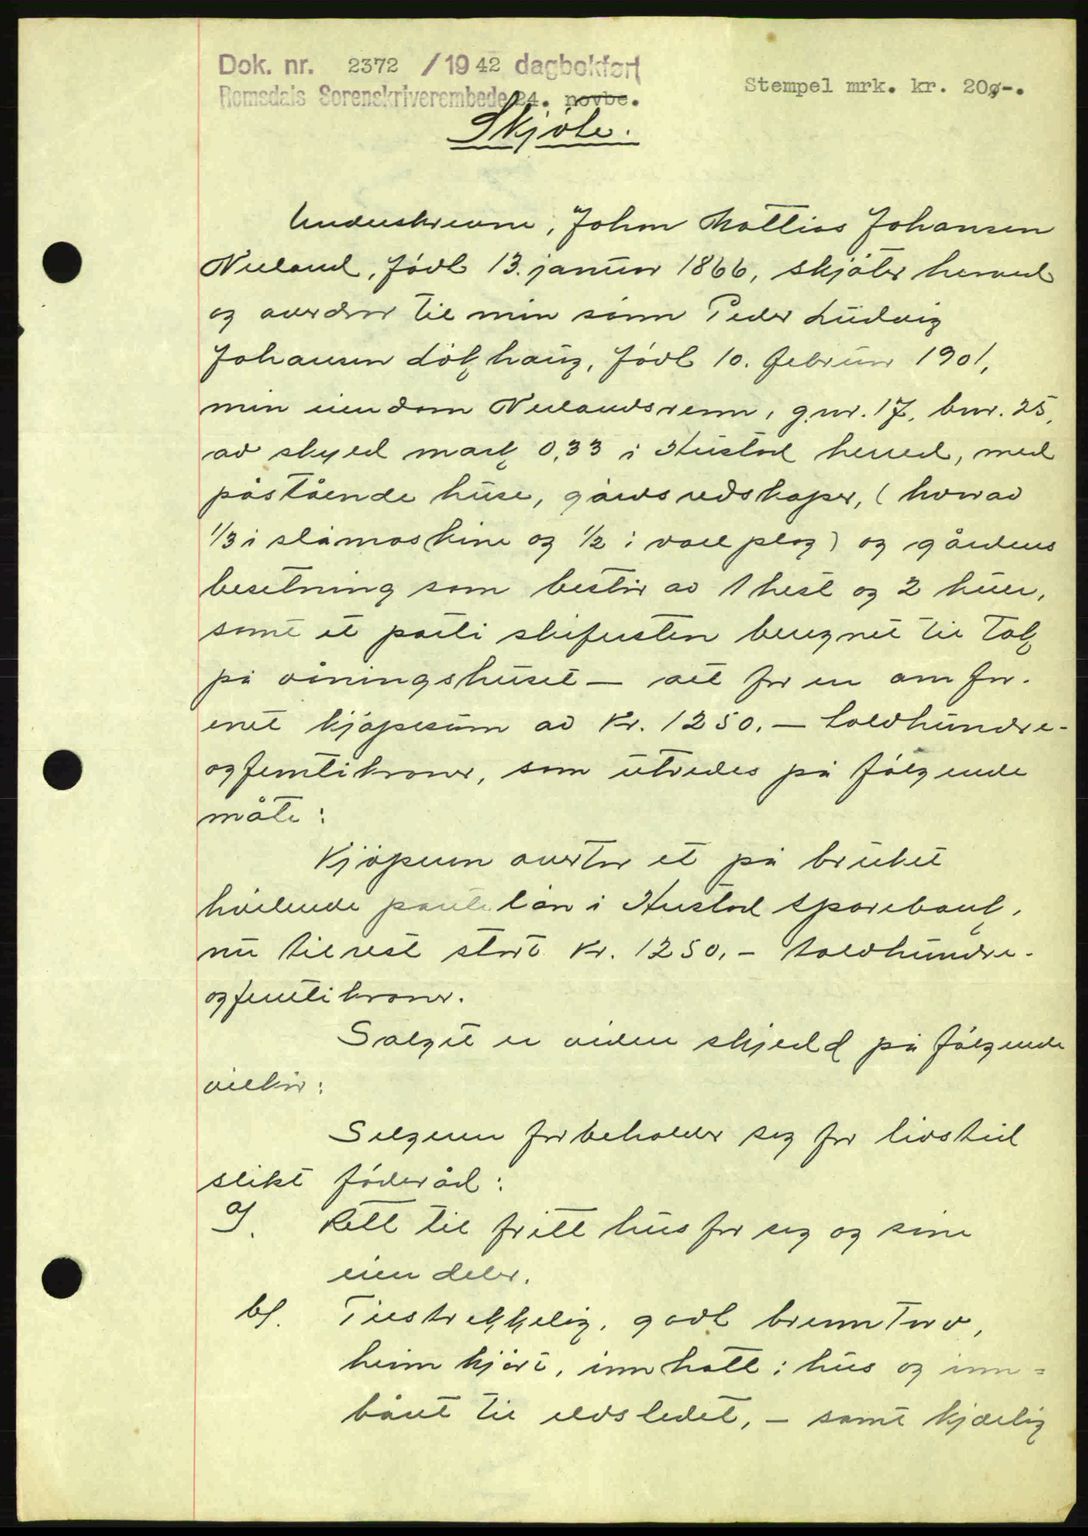 Dok. nr. 2372 /1942 dagbokført
Romsdals Sorenskriverembede 24. novbr.
Stempel mrk. kr. 20,-.
Skjöte.
Underskrevne, Johan Mattias Johansen
Neeland, född 13. januar 1866, skjöter herved
og overdrar til min sönn Peder Ludvig
Johansen Lökhaug, född 10. februar 1901,
min eiendom Neelandsrenn, g.nr. 17, bnr. 25,
av skyld mark 0,33 i Hustad herred, med
påstående huse, gårdsredskaper, (hvorav
1/3 i slåmaskine og 1/2 i voll plog) og gårdens
besetning som består av 1 hest og 2 kuer,
samt et parti skifersten beregnet til tak
på våningshuset — alt for en omfor-
enet kjöpesum av kr. 1250,— tolvhundre-
ogfemtikroner, som utredes på fölgende
måte:
Kjöperen overtar et på bruket
hvilende pantelån i Hustad Sparebank,
nu til rest stort kr. 1250,- tolvhundre-
ogfemtikroner.
Salget er videre skjedd på fölgende
vilkår:
Selgeren forbeholder seg for livstid
slikt föderåd:
a). Rett til fritt hus for seg og sine
eiendeler.
b). Tilstrekkelig, godt brenntorv,
heimkjört, innhatt i hus og inn-
båret til ildstedet, — samt kjörlig